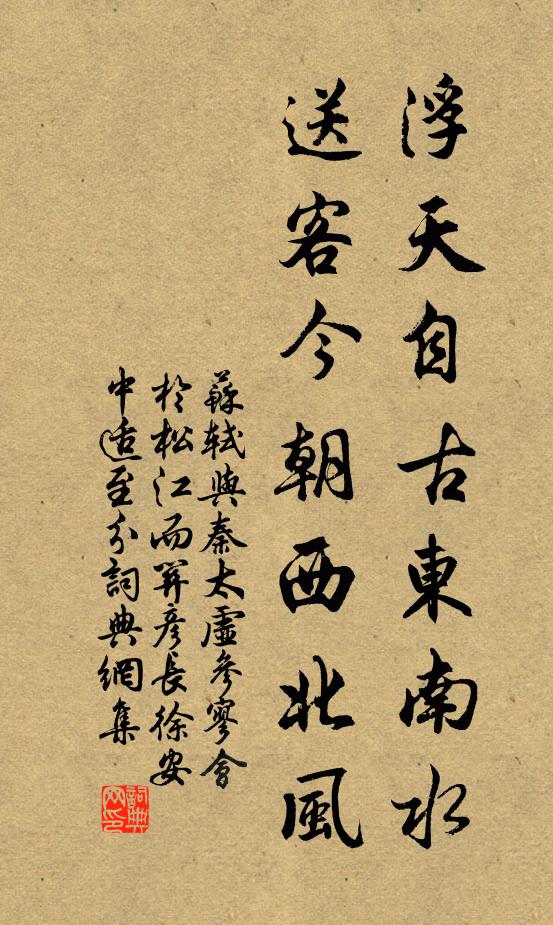 浮天自古東南水
送客今朝西北風
蘇軾與秦太虛參寥會
於松江而關彥長徐安
中適至分詞典網集
詞典网印